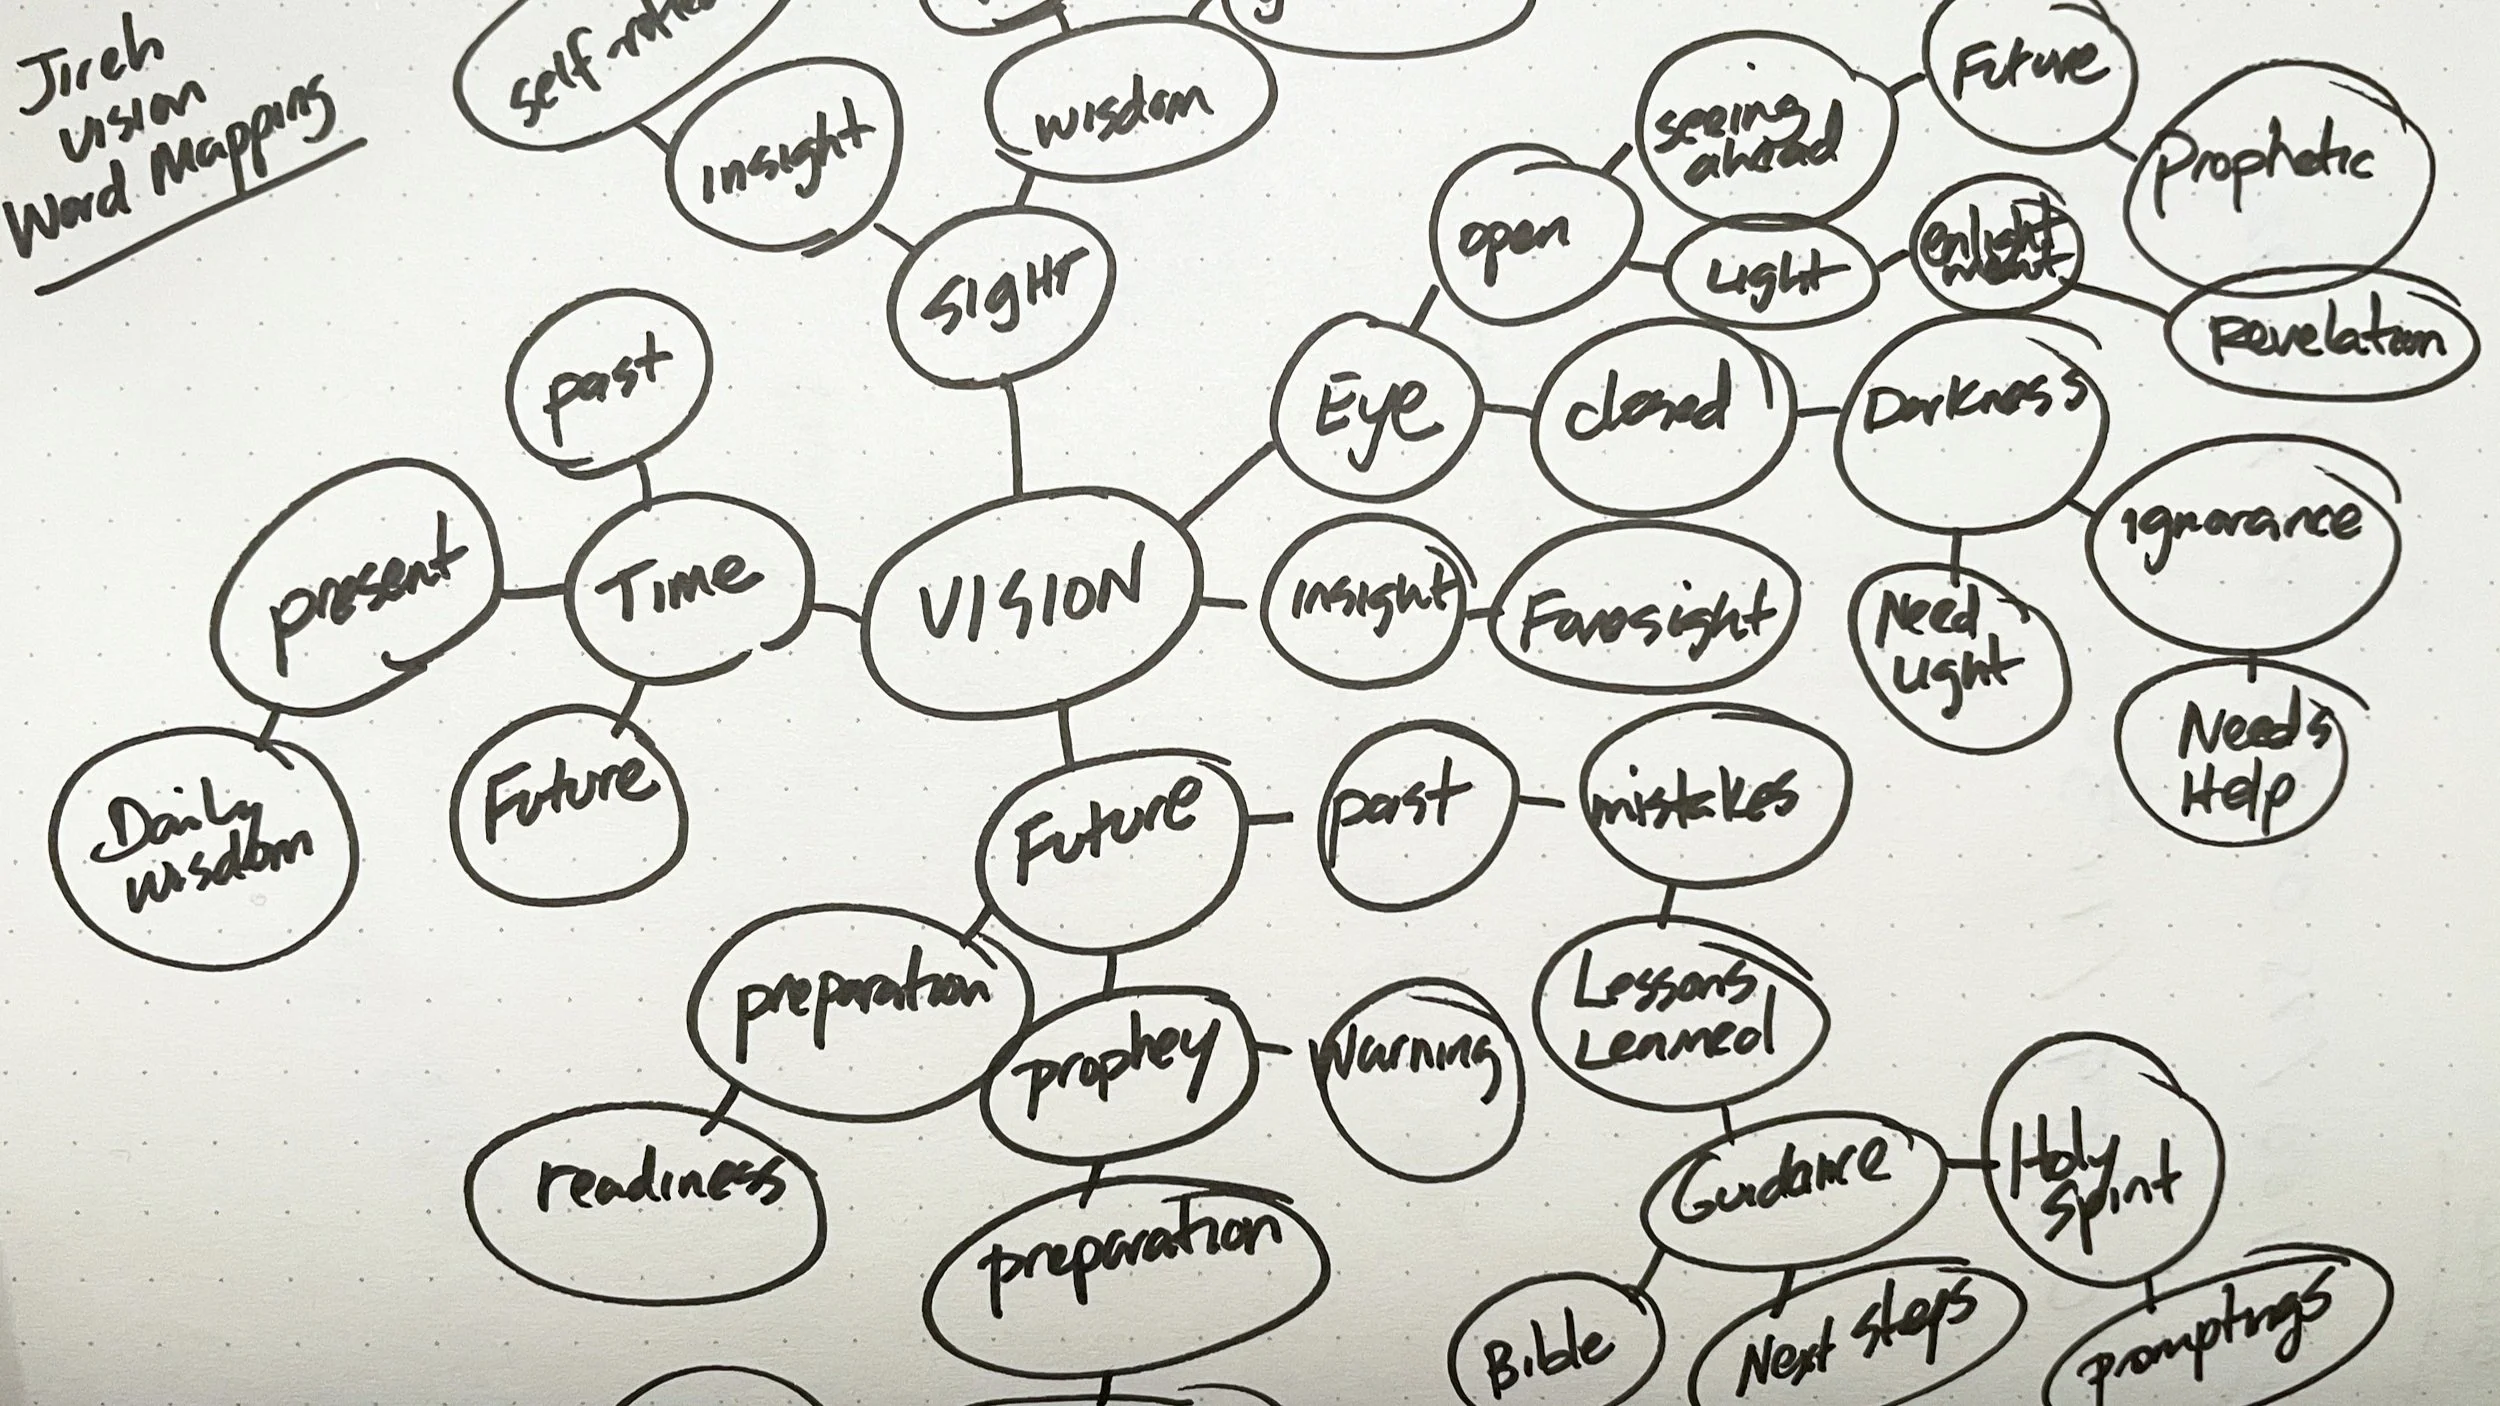 Jireh
Vision
Word Mapping
Insight
wisdom
SIGHT
past
present
TIME
Future
Daily
wisdom
VISION
Eye
open
seeing
ahead
Future
Prophetic
Light
enlight
ment
Revelation
closed
Darkness
Ignorance
Need
Light
Needs
Help
Insight
Foresight
Future
past
mistakes
Lessons
Learned
preparation
prophey
Warning
readiness
preparation
Guidance
Holy
Spirit
Bible
Next Steps
promptings